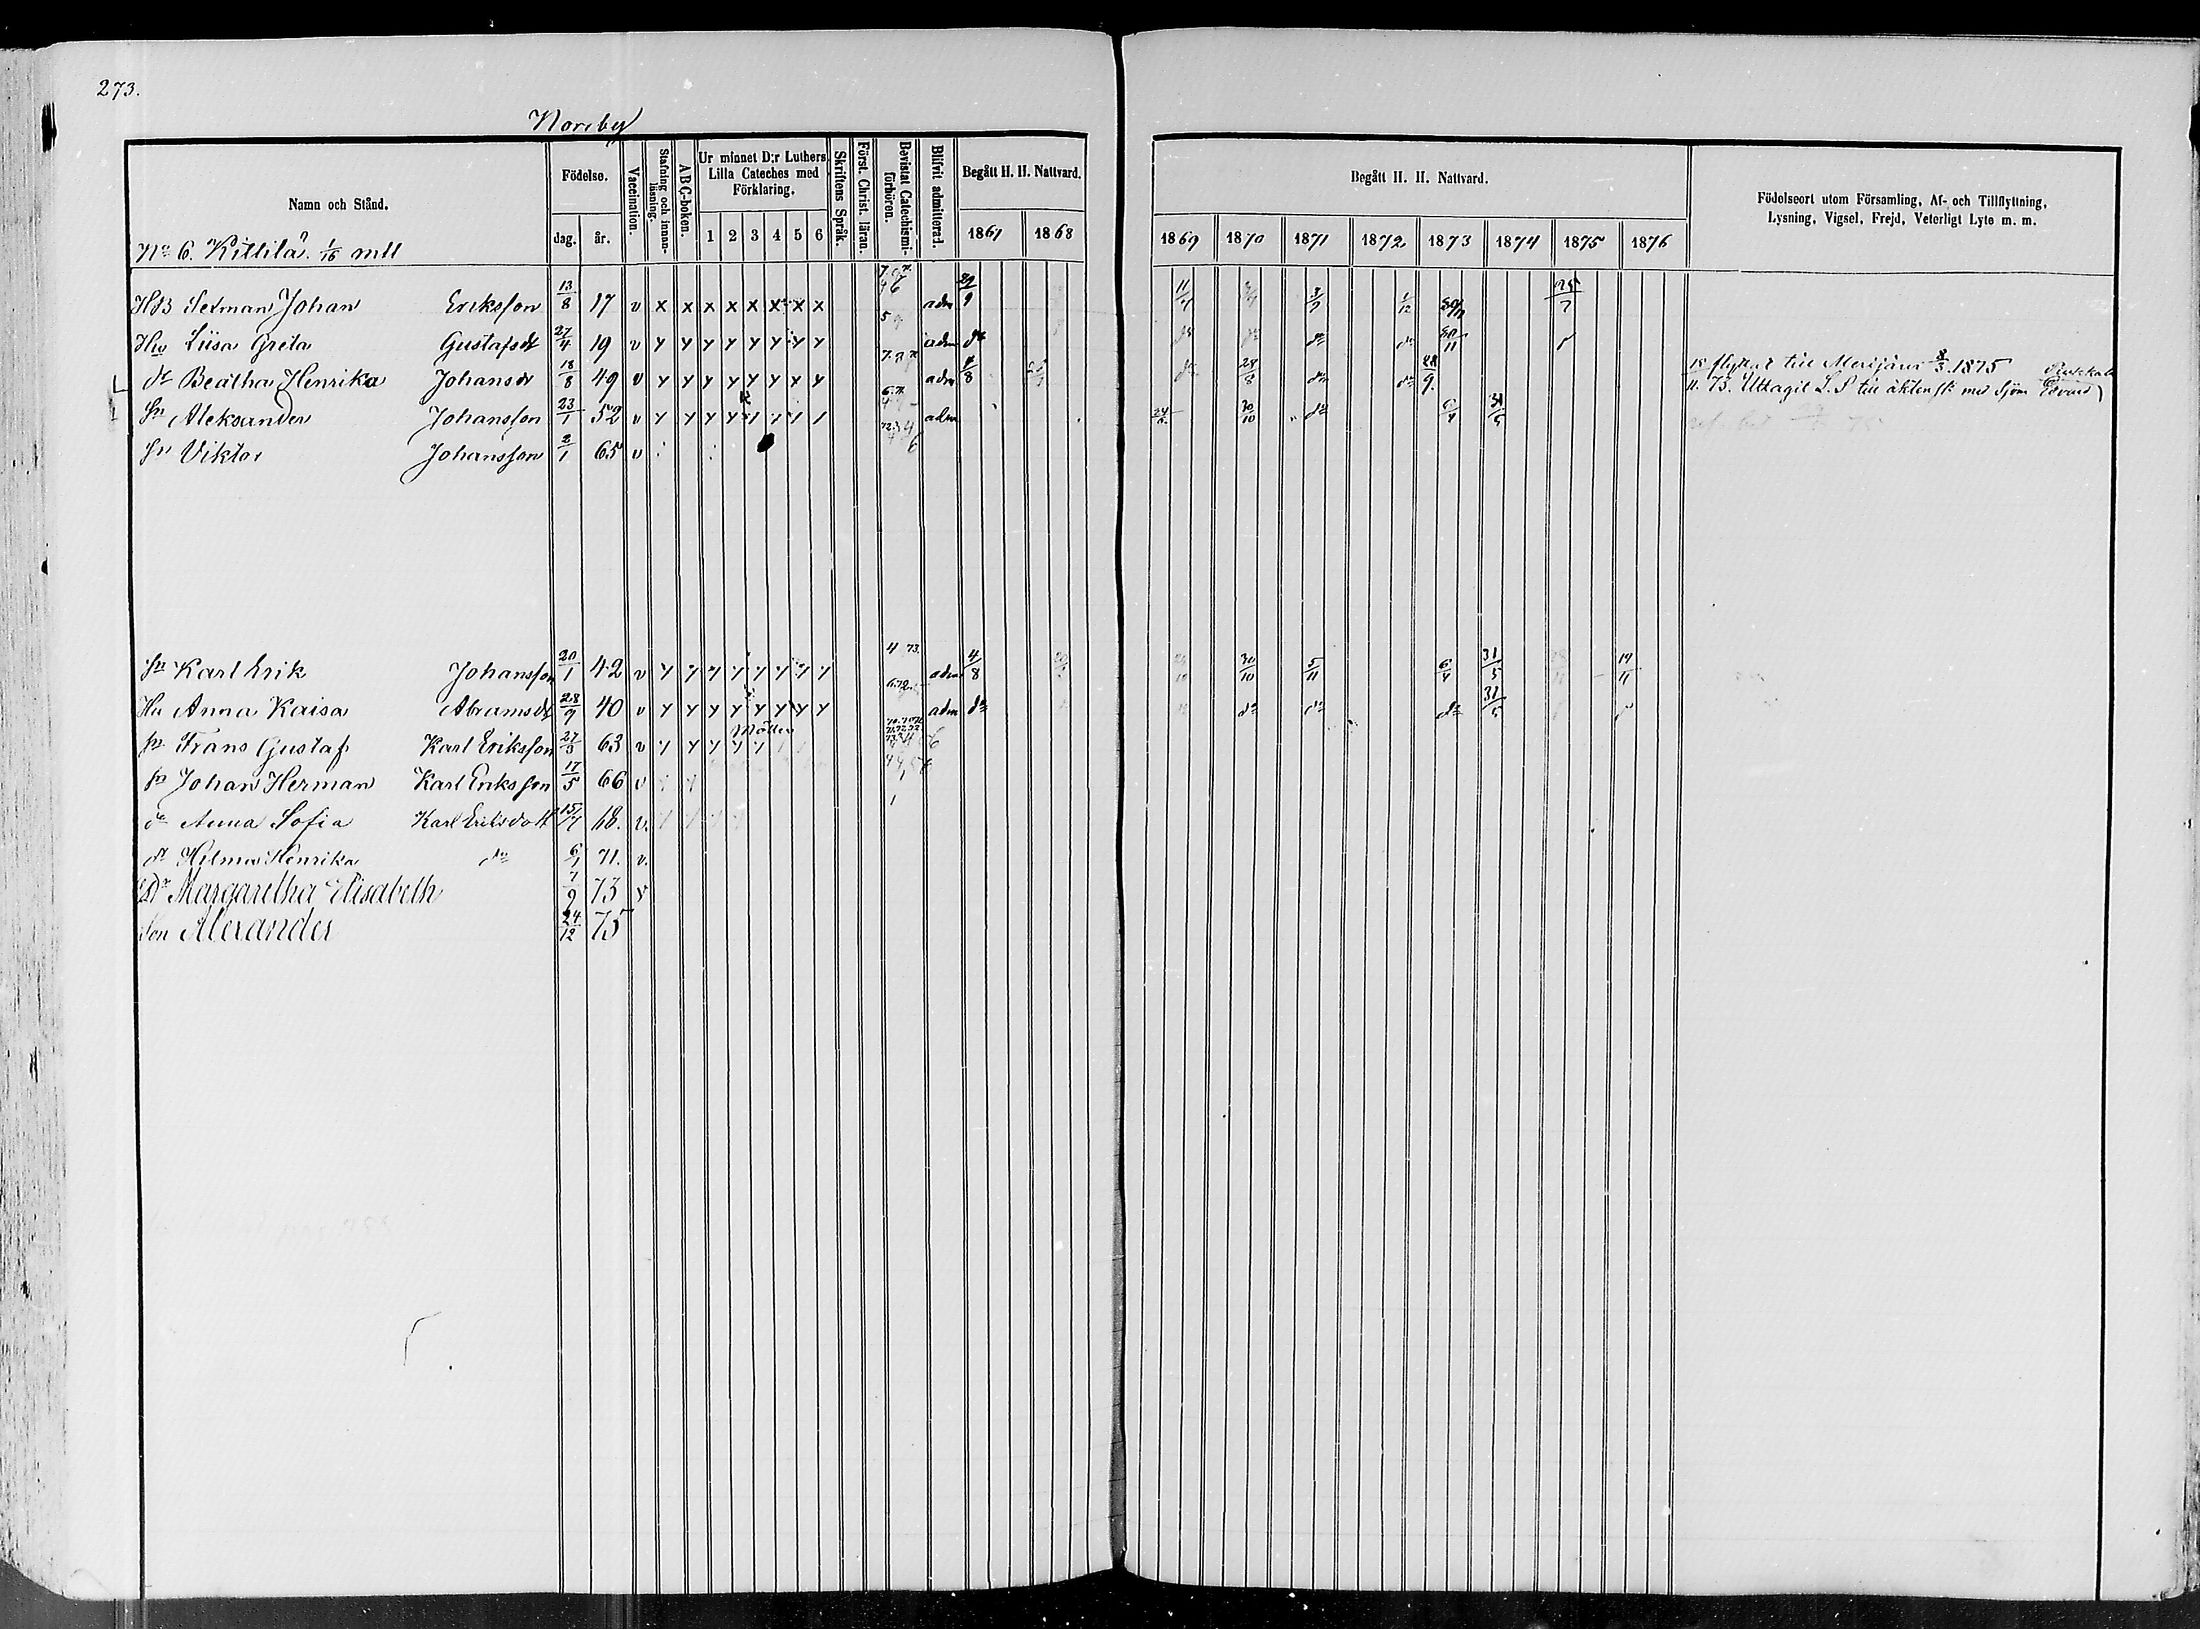 273.
Norrby
Namn och Stånd.
Födelse.
dag.
år.
Vaccination.
Stafning och innan-läsning.
ABC-boken.
Ur minnet D:r Luthers
Lilla Cateches med
Förklaring.
1 2 3 4 5 6
Skriftens Språk.
Först. Christ. läran.
Bevistat Catechismi-förhören.
Blifvit admitterad.
Begått H. H. Nattvard.
1867 1868
Begått H. H. Nattvard.
1869 1870 1871 1872 1873 1874 1875 1876
Födelseort utom Församling, Af- och Tillflyttning,
Lysning, Vigsel, Frejd, Veterligt Lyte m. m.
No 6. Killilä. 1/16 mtl
HB Setman Johan Eriksson 13/8 17 v x x x x x x x x adm 29/9 11/4 1/12 25/7
Hu Liisa Greta Gustafsdr 27/4 19 v y y y y y y y y adm do do do do
dr Beatha Henrika Johansdr 18/8 49 v y y y y y y x y adm 4/8 do 28/8 do do 28/9. flyttat till Merijärvi 8/3 1875
11. 73. Uttagit L. S till äktensk med Sjöm
sn Aleksander Johansson 23/1 52 v y y y y y y y 1 adm 30/10 do 6/4 31/5
sn Viktor Johansson 2/1 65 v
sn Karl Erik Johansson 20/1 42 v y y y y y y y y 4 73. adm 4/8 30/10 5/11 6/4 31/5 19/11
Hu Anna Kaisa Abramsdr 28/9 40 v y y y y y y y y adm do do do do 31/5
sn Frans Gustaf Karl Eriksson 27/3 63 v y y y y y
sn Johan Herman Karl Eriksson 17/5 66 v
dr Anna Sofia Karl Eriksdott 15/4 68. v.
dr Hilma Henrika do 6/1 71. v.
Dr Margaretha Elisabeth 7/9 73 v
Son Alexander 24/12 75